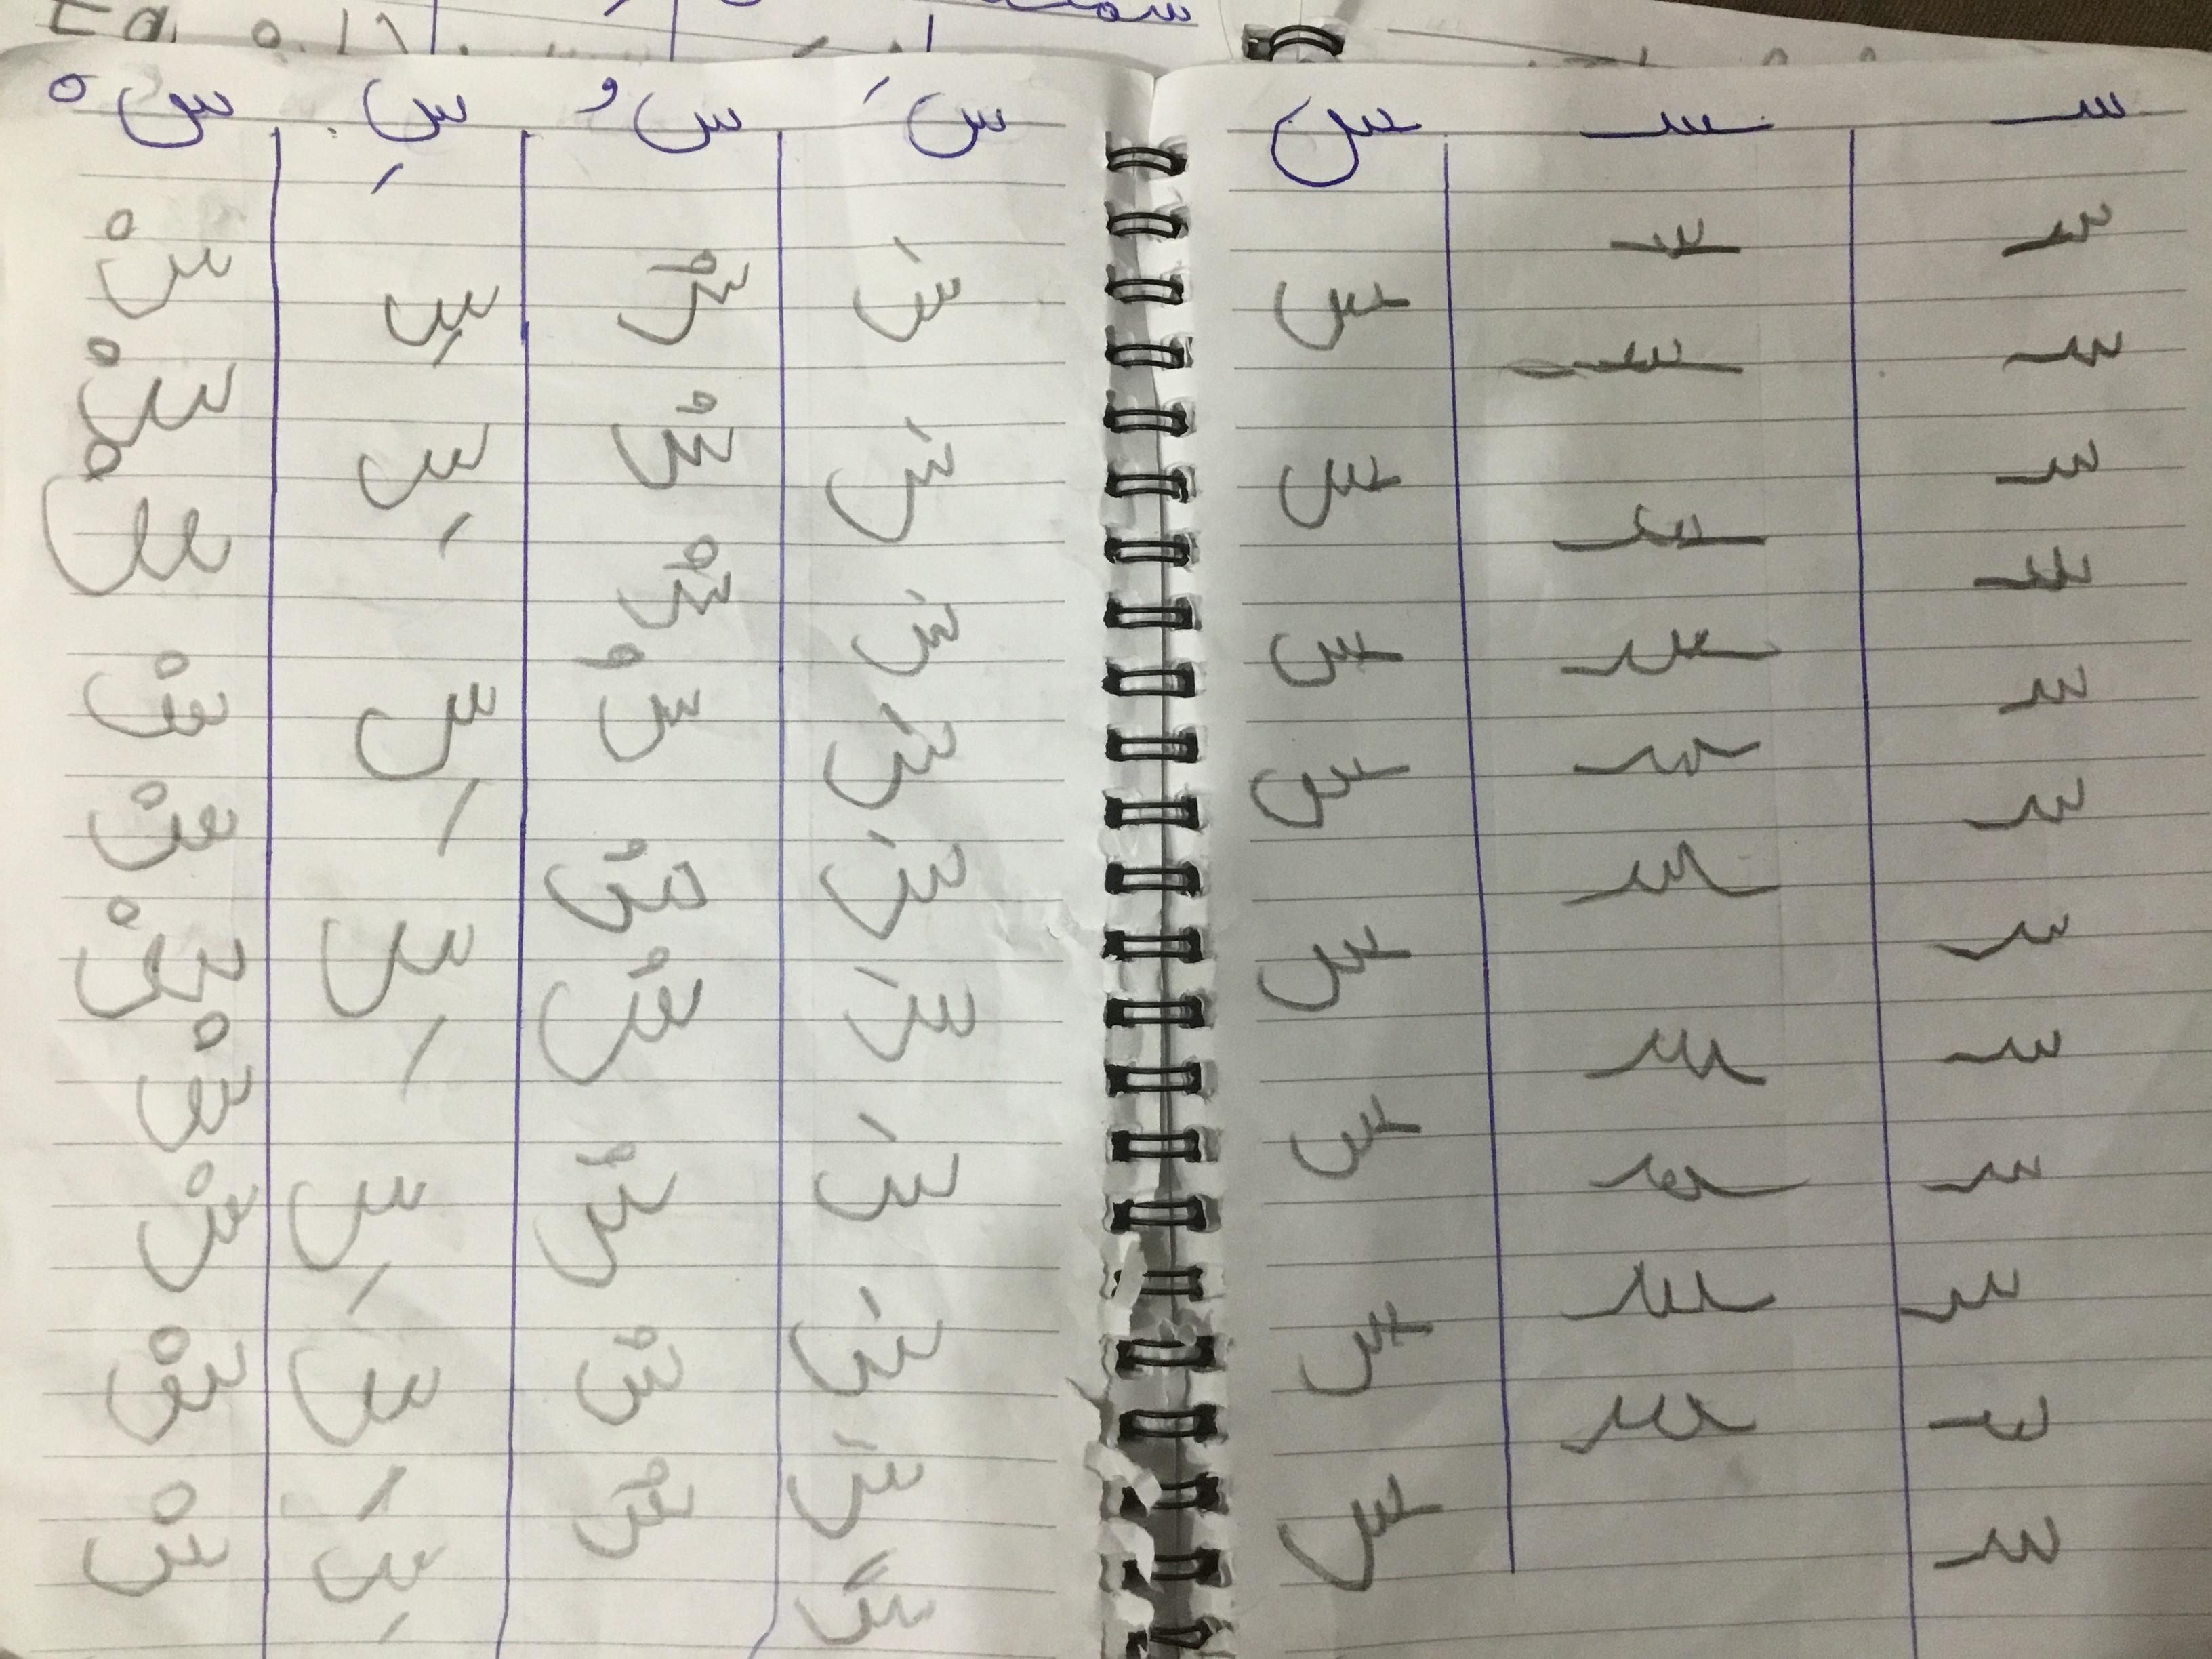 سـ ـسـ ـس
سـ ـسـ
سـ ـسـ ـس
سـ ـسـ ـس
سـ ـسـ ـس
سـ ـسـ ـس
سـ ـسـ ـس
سـ ـسـ ـس
سـ ـسـ ـس
سـ ـسـ
سـ ـسـ
سـ
سَ سُ سِ سْ
سَ سُ سِ سْ
سَ سُ سِ سْ
سَ سُ سِ سْ
سَ سُ سِ سْ
سَ سُ سِ سْ
سَ سُ سِ سْ
سَ سُ سِ سْ
سَ سُ سْ
سَ سُ سْ
سَ